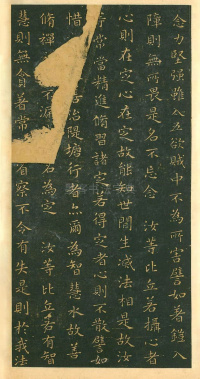 念力堅強雖入五欲賊中不為所害譬如著鎧入
陣則無所畏是名不忘念 汝等比丘若攝心者
心則在定心在定故能知世間生滅法相是故汝
等常當精進脩習諸定若得定者心則不散譬如
惜 治堤塘行者亦爾為智慧水故善
脩禪 不漏 名為定 汝等比丘若有智
慧則無貪著常 省察不令有失是則於我法